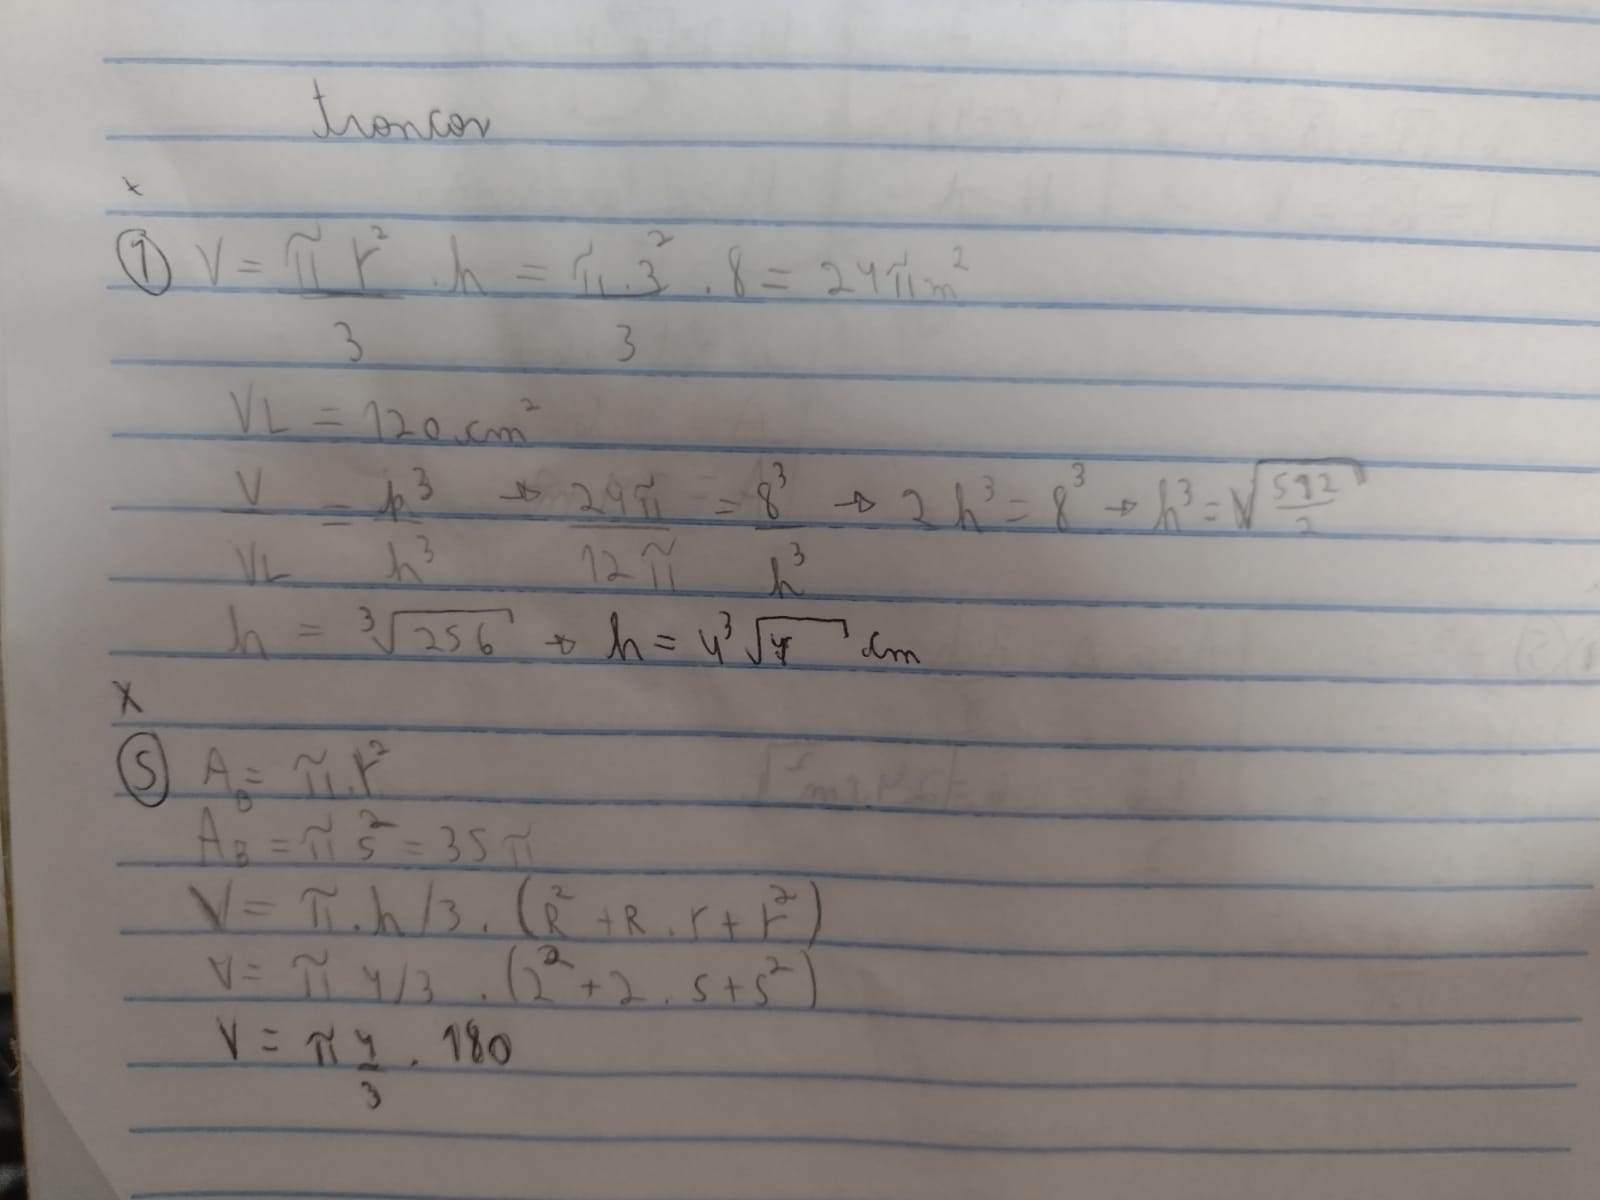 troncos
x
① V = π r² / 3 . h = π . 3² / 3 . 8 = 24π m²
VL = 120 cm²
V / VL = h³ / h³ → 24π / 12π = 8³ / h³ → 2 h³ = 8³ → h³ = √(592 / 2)
h = ³√256 → h = 4 ³√4 cm
X
⑤ A_B = π . r²
A_B = π 5² = 35 π
V = π . h/3 . (R² + R . r + r²)
V = π 4/3 . (2² + 2 . 5 + 5²)
V = π 4/3 . 180